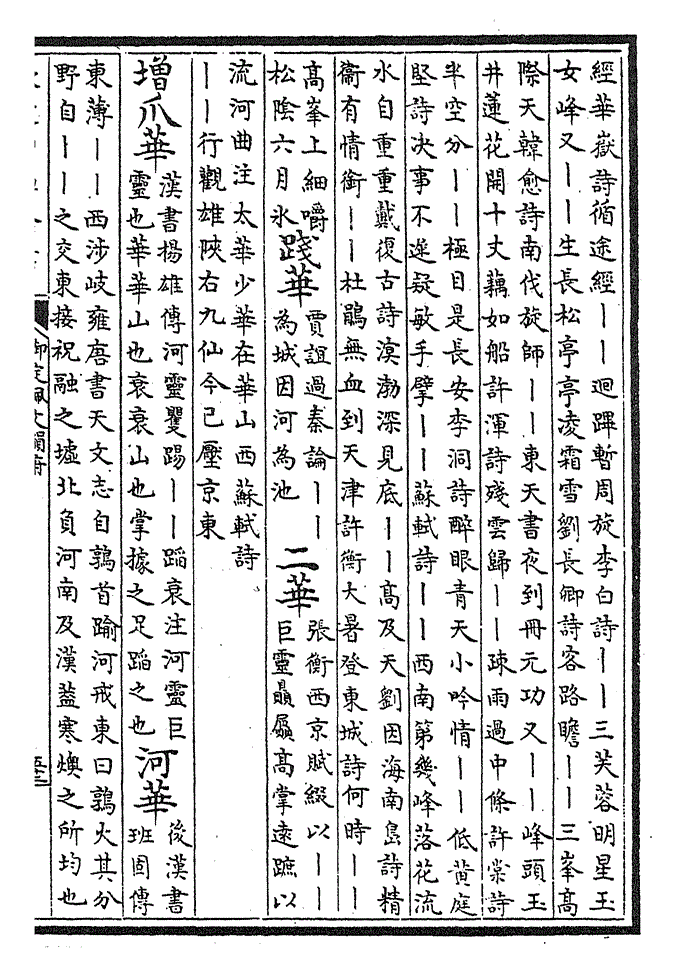 經華嶽詩循途經丨丨迴蹕暫周旋李白詩丨丨三芙蓉明星玉
女峰又丨丨生長松亭亭凌霜雪劉長卿詩客路瞻丨丨三峯高
際天韓愈詩南伐旋師丨丨東天書夜到冊元功又丨丨峰頭玉
井蓮花開十丈藕如船許渾詩殘雲歸丨丨疎雨過中條許棠詩
半空分丨丨極目是長安李洞詩醉眼青天小吟情丨丨低黄庭
堅詩决事不遲疑敏手擘丨丨蘇軾詩丨丨西南第幾峰落花流
水自重重戴復古詩溟渤深見底丨丨高及天劉因海南島詩精
衞有情銜丨丨杜鵑無血到天津許衡大暑登東城詩何時丨丨
高峯上細嚼
松陰六月氷
踐華
賈誼過秦論丨丨
為城因河為池
二華
張衡西京賦綴以丨丨
巨靈贔屭高掌遠蹠以
流河曲注太華少華在華山西蘇軾詩
丨丨行觀雄陜右九仙今已壓京東
增爪華
漢書楊雄傳河靈矍踢丨丨蹈衰注河靈巨
靈也華華山也衰衰山也掌據之足蹈之也
河華
後漢書
班固傳
東薄丨丨西涉岐雍唐書天文志自鶉首踰河戒東曰鶉火其分
野自丨丨之交東接祝融之墟北負河南及漢葢寒燠之所均也
御定佩文韻府